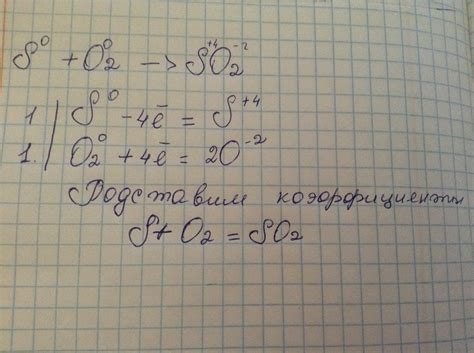 S⁰ + O₂⁰ -> S⁺⁴O₂⁻²
1 | S⁰ - 4ē = S⁺⁴
1. | O₂⁰ + 4ē = 2O⁻²
Подставим коэффициенты
S + O₂ = SO₂